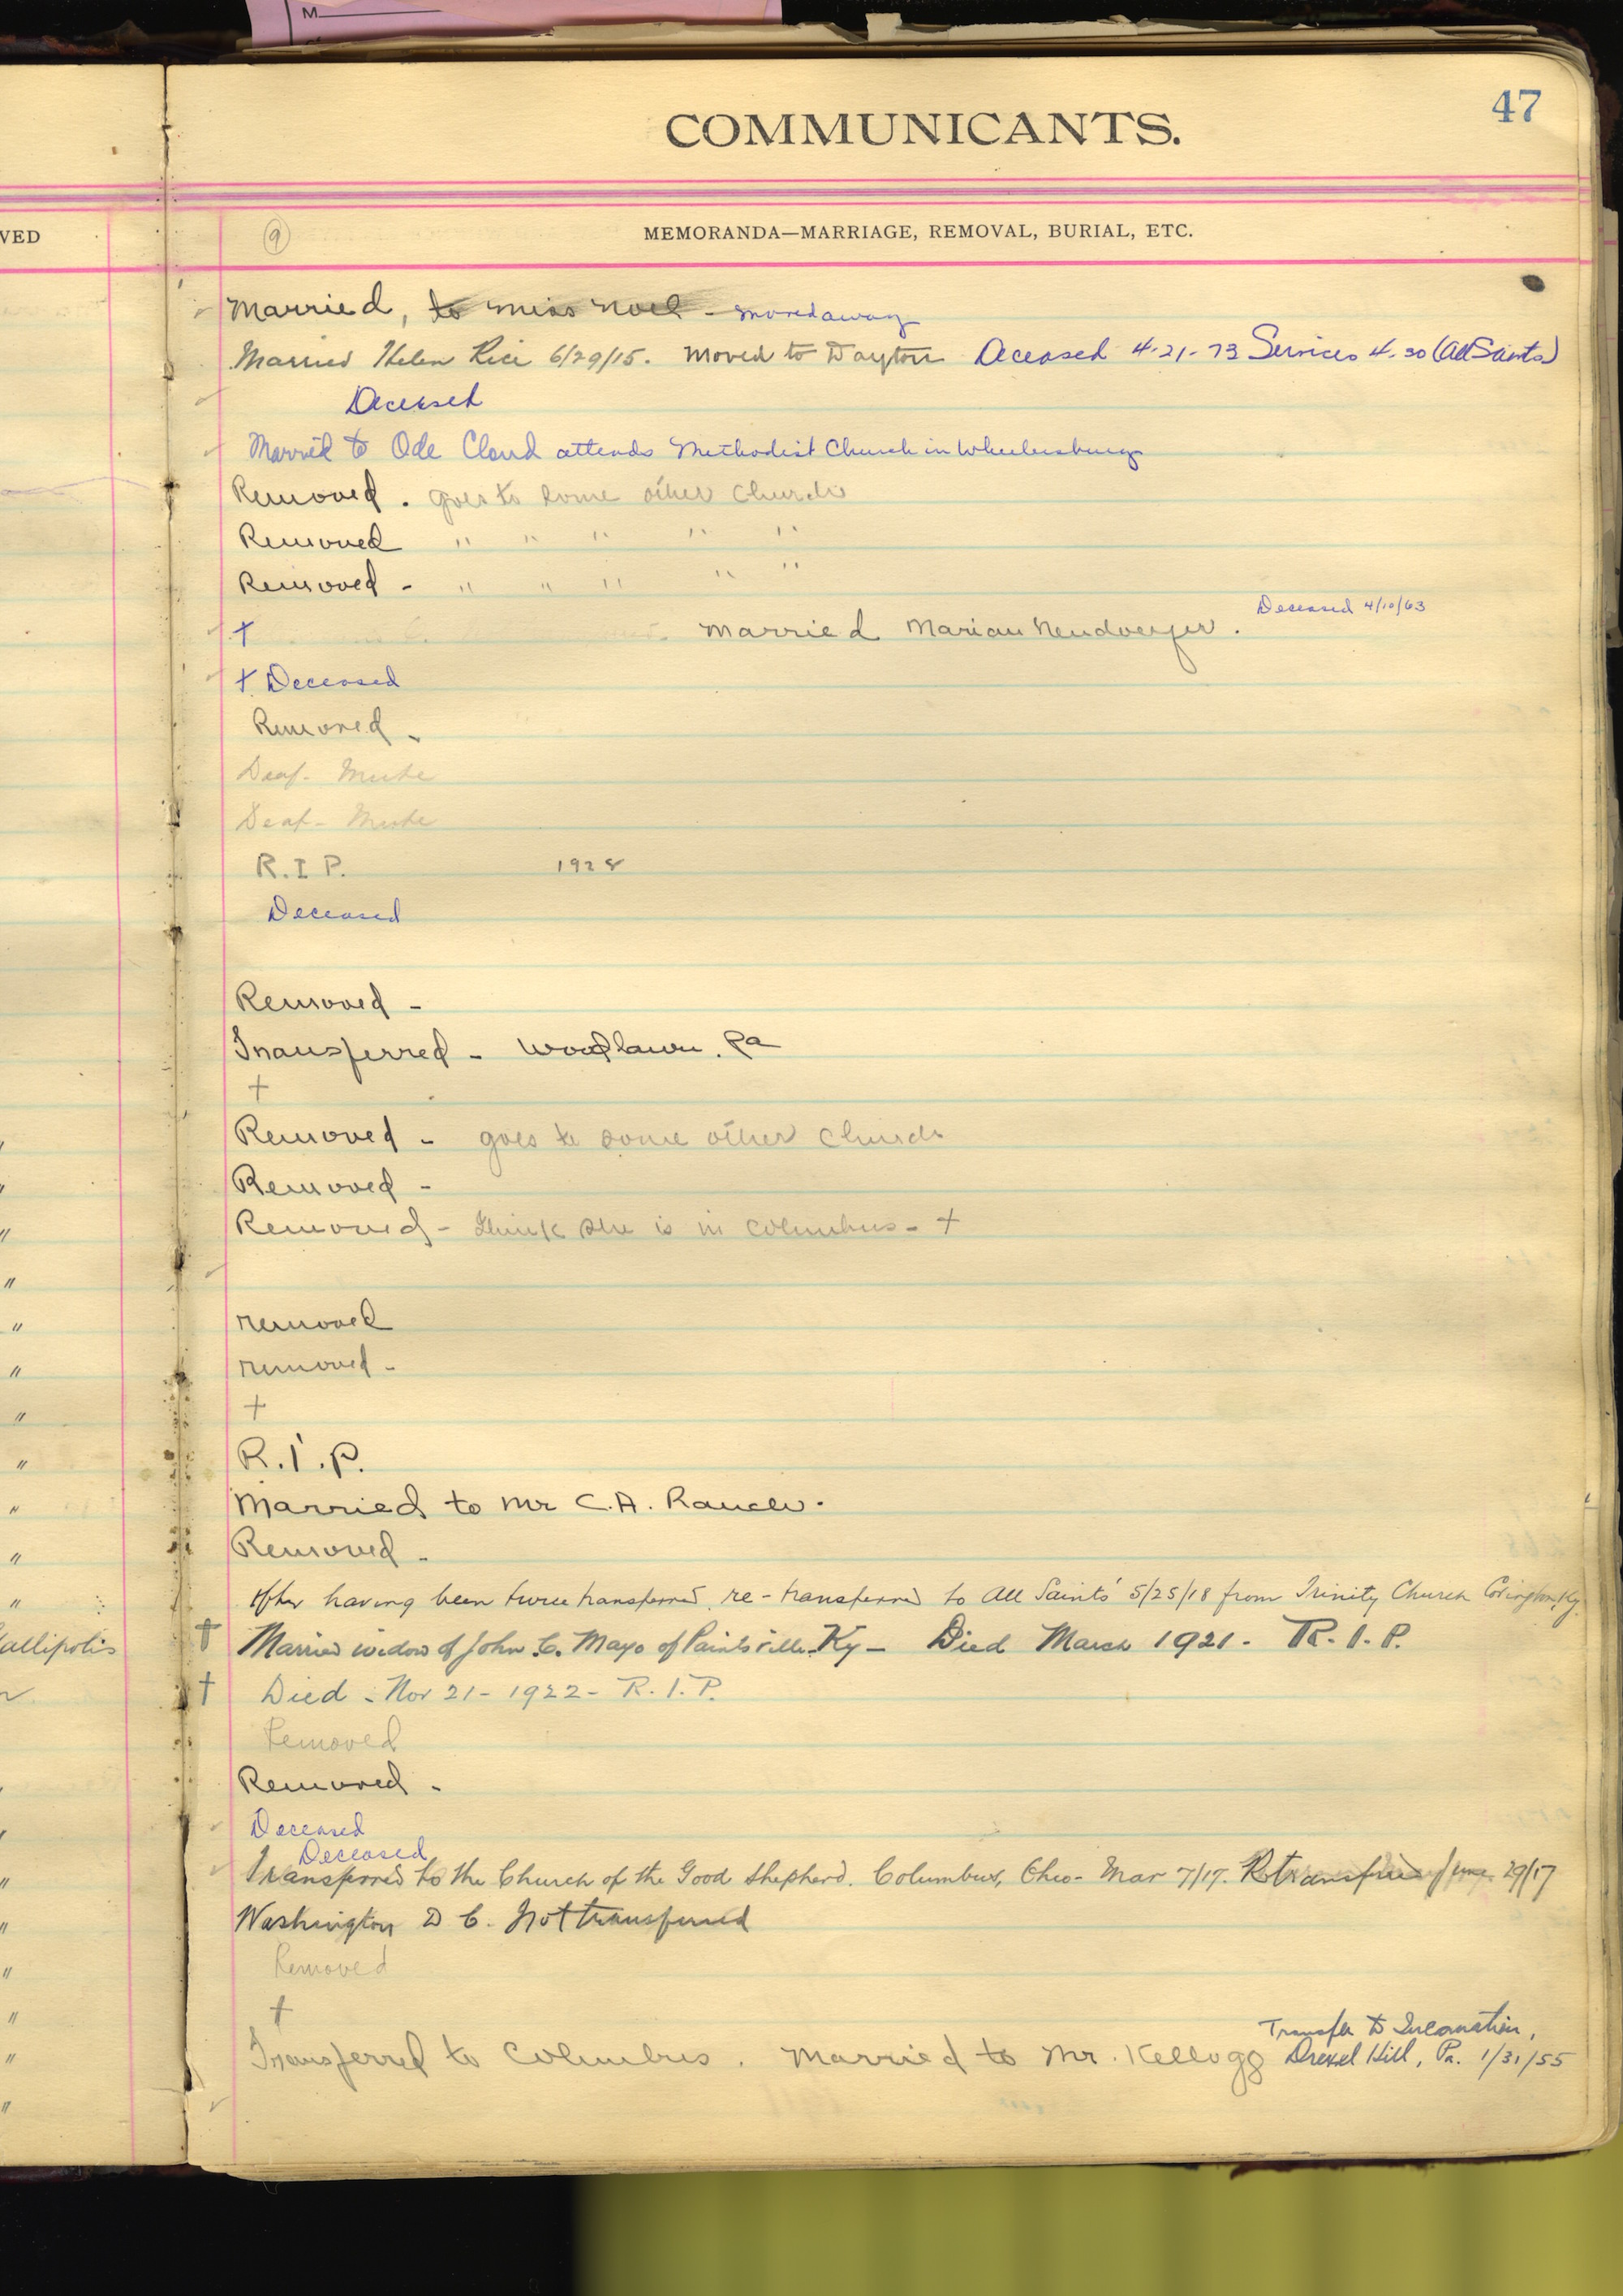 M
47
COMMUNICANTS.
VED
9
MEMORANDA—MARRIAGE, REMOVAL, BURIAL, ETC.
Married, to Miss Noel - moved away
Married Helen Rice 6/29/15. Moved to Dayton Deceased 4-21-73 Services 4-30 (All Saints)
Deceased
Married to Ode Cloud attends Methodist Church in Wheelersburg
Removed. goes to some other church
Removed " " " " "
Removed - " " " " "
Deceased 4/10/63
† Married Marian
† Deceased
Removed -
Deaf-Mute
Deaf-Mute
R.I.P. 1928
Deceased
Removed -
Transferred - Woodlawn. Pa
†
Removed - goes to some other church
Removed -
Removed - think she is in Columbus - †
"
"
removed
"
removed -
"
†
"
R.I.P.
"
Married to Mr C.A. Rauch.
"
Removed -
"
After having been twice transferred, re-transferred to All Saints' 5/25/18 from Trinity Church Covington, Ky.
allipolis
† Married widow of John C. Mayo of Paintsville, Ky - Died March 1921 - R.I.P.
† Died - Nov 21 - 1922 - R.I.P.
Removed
Removed -
Deceased
Deceased
Transferred to the Church of the Good Shepherd. Columbus, Ohio - Mar 7/17. Retransferred June 29/17
"
Washington D C. Not transferred
"
Removed
"
†
Transfer to Incarnation,
"
Transferred to Columbus. Married to Mr. Kellogg Drexel Hill, Pa. 1/31/55
"